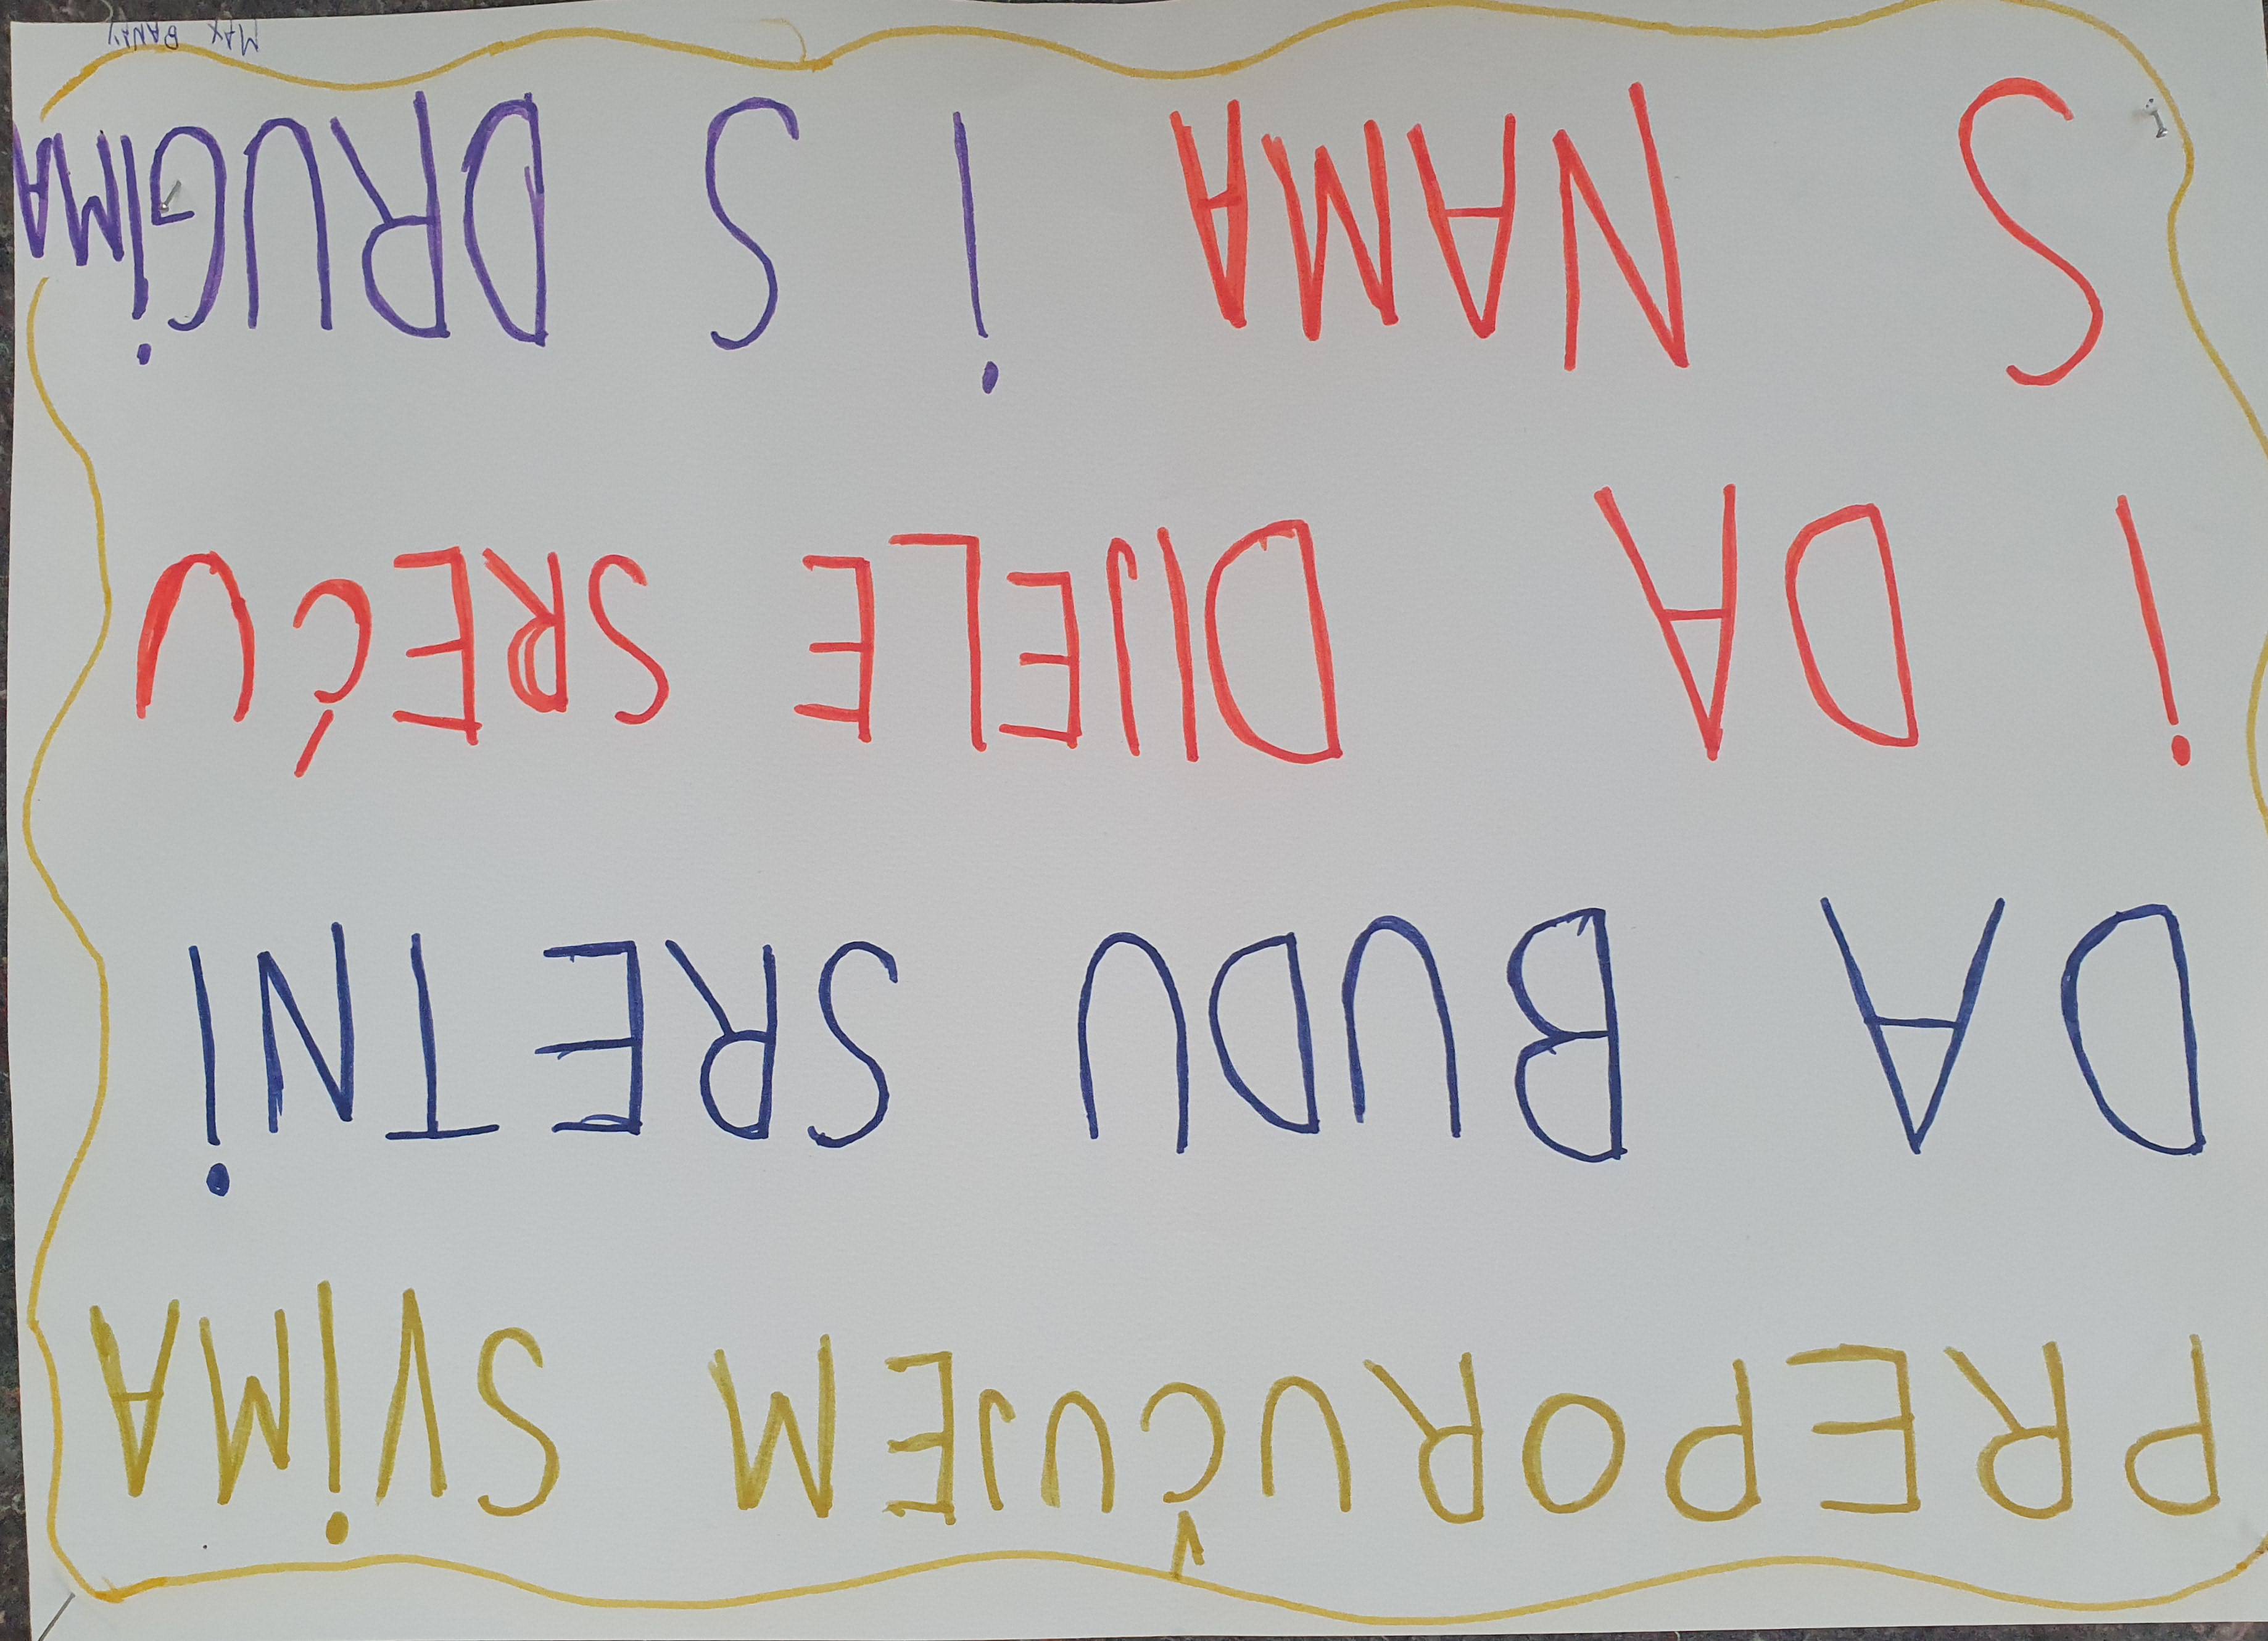 PREPORUČUJEM SViMA
DA BUDU SRETNi
i DA DIJELE SREĆU
S NAMA i S DRUGiMA
MAX